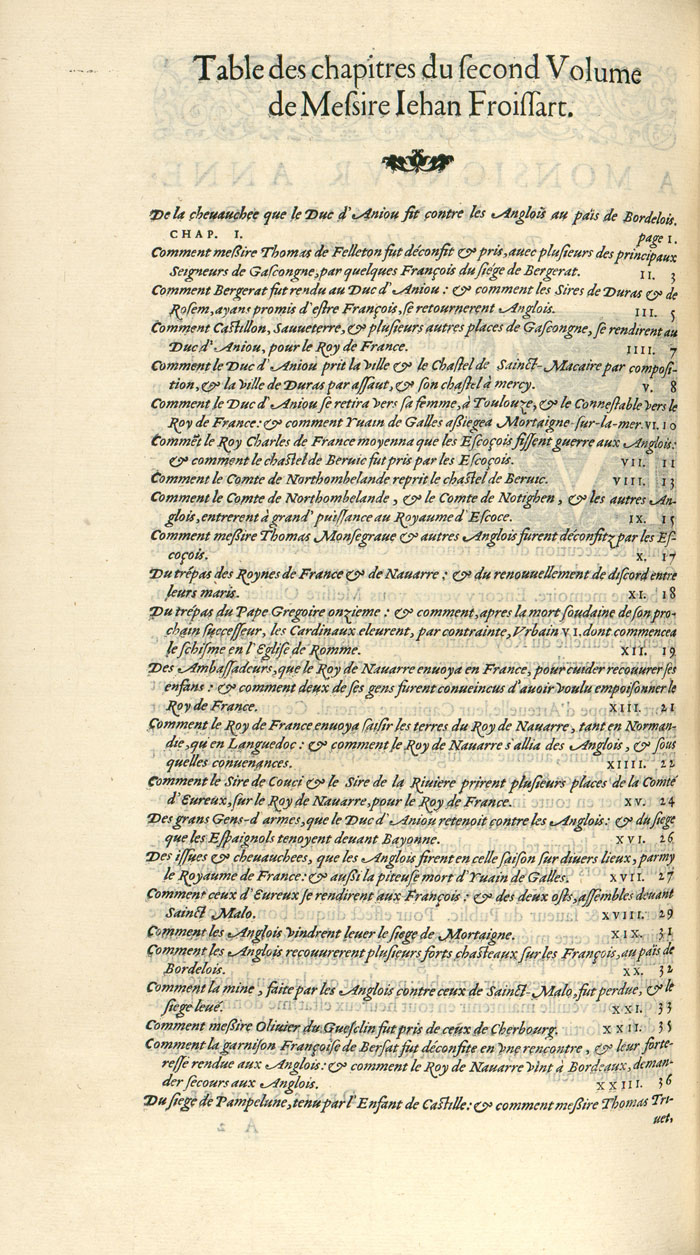 Table des chapitres du ſecond Volume
de Meſsire Iehan Froiſſart.
De la cheuauchee que le Duc d'Aniou fit contre les Anglois au païs de Bordelois.
CHAP. I. page 1.
Comment meßire Thomas de Felleton fut déconfit & pris, auec pluſieurs des principaux
Seigneurs de Gaſcongne, par quelques François du ſiége de Bergerat. II. 3
Comment Bergerat fut rendu au Duc d'Aniou : & comment les Sires de Duras & de
Roſem, ayans promis d'eſtre François, ſe retournerent Anglois. III. 5
Comment Caſtillon, Sauueterre, & pluſieurs autres places de Gaſcongne, ſe rendirent au
Duc d'Aniou, pour le Roy de France. IIII. 7
Comment le Duc d'Aniou prit la ville & le Chaſtel de Sainct-Macaire par compoſi-
tion, & la ville de Duras par aſſaut, & ſon chaſtel à mercy. V. 8
Comment le Duc d'Aniou ſe retira vers ſa femme, à Toulouze, & le Conneſtable vers le
Roy de France: & comment Yuain de Galles aßiegea Mortaigne-ſur-la-mer. VI. 10
Commẽt le Roy Charles de France moyenna que les Eſcoçois fiſſent guerre aux Anglois:
& comment le chaſtel de Beruic fut pris par les Eſcoçois. VII. 11
Comment le Comte de Northombelande reprit le chaſtel de Beruic. VIII. 13
Comment le Comte de Northombelande, & le Comte de Notighen, & les autres An-
glois, entrerent à grand' puiſſance au Royaume d'Eſcoce. IX. 15
Comment meßire Thomas Monſegraue & autres Anglois furent déconfitz par les Eſ-
coçois. X. 17
Du trépas des Roynes de France & de Nauarre : & du renouuellement de diſcord entre
leurs maris. XI. 18
Du trépas du Pape Gregoire onzieme : & comment, apres la mort ſoudaine de ſon pro-
chain ſucceſſeur, les Cardinaux eleurent, par contrainte, Vrbain VI. dont commencea
le ſchiſme en l'Egliſe de Romme. XII. 19
Des Ambaſſadeurs, que le Roy de Nauarre enuoya en France, pour cuider recouurer ſes
enfans : & comment deux de ſes gens furent conueincus d'auoir voulu empoiſonner le
Roy de France. XIII. 21
Comment le Roy de France enuoya ſaiſir les terres du Roy de Nauarre, tant en Norman-
die, qu'en Languedoc : & comment le Roy de Nauarre s'allia des Anglois, & ſous
quelles conuenances. XIIII. 22
Comment le Sire de Couci & le Sire de la Riuiere prirent pluſieurs places de la Comté
d'Eureux, ſur le Roy de Nauarre, pour le Roy de France. XV. 24
Des grans Gens-d'armes, que le Duc d'Aniou retenoit contre les Anglois: & du ſiege
que les Eſpaignols tenoyent deuant Bayonne. XVI. 26
Des iſſues & cheuauchees, que les Anglois firent en celle ſaiſon ſur diuers lieux, parmy
le Royaume de France: & außi la piteuſe mort d'Yuain de Galles. XVII. 27
Comment ceux d'Eureux ſe rendirent aux François : & des deux oſts, aſſembles deuant
Sainct Malo. XVIII. 29
Comment les Anglois vindrent leuer le ſiege de Mortaigne. XIX. 31
Comment les Anglois recouurerent pluſieurs forts chaſteaux ſur les François, au païs de
Bordelois. XX. 32
Comment la mine, faite par les Anglois contre ceux de Sainct-Malo, fut perdue, & le
ſiege leué. XXI. 33
Comment meßire Oliuier du Gueſclin fut pris de ceux de Cherbourg. XXII. 35
Comment la garniſon Françoiſe de Berſat fut déconfite en vne rencontre, & leur forte-
reſſe rendue aux Anglois: & comment le Roy de Nauarre vint à Bordeaux, deman-
der ſecours aux Anglois. XXIII. 36
Du ſiege de Pampelune, tenu par l'Enfant de Caſtille: & comment meßire Thomas Tri-
uet,